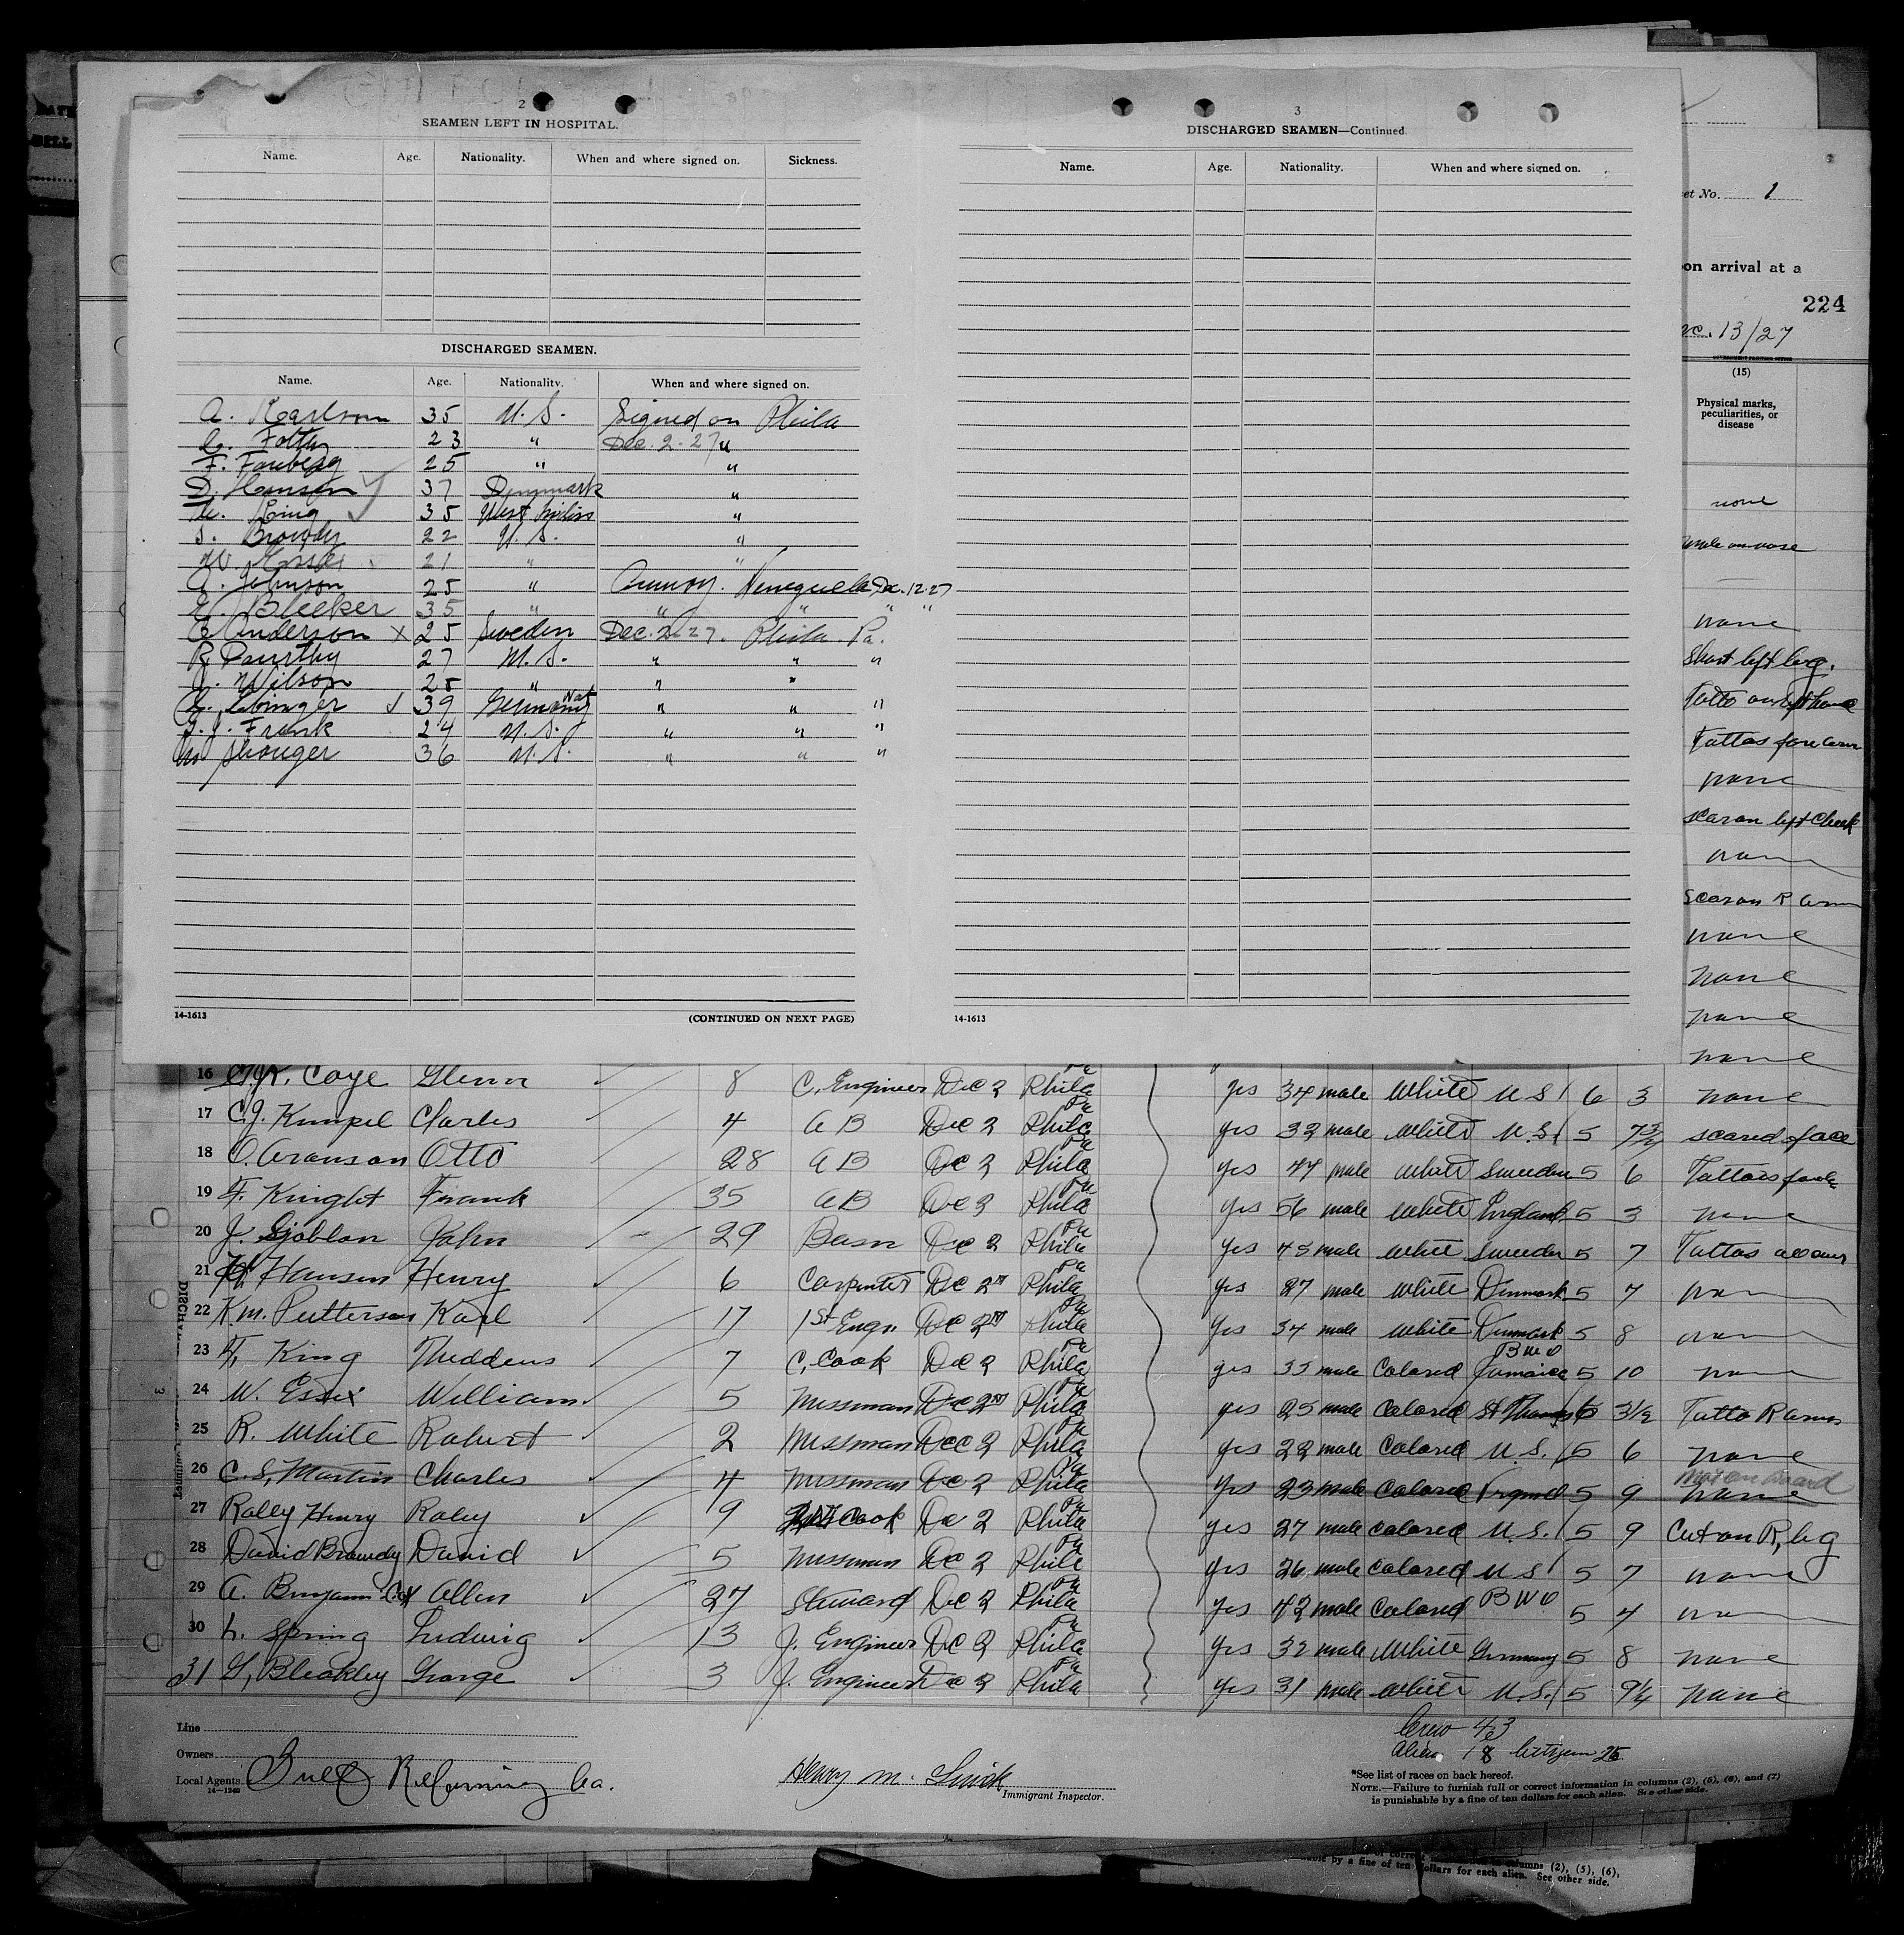 2
SEAMEN LEFT IN HOSPITAL.
Name. Age. Nationality. When and where signed on. Sickness.
DISCHARGED SEAMEN.
Name. Age. Nationality. When and where signed on.
A. Karlson 35 U.S. Signed on Phila
23 " Dec. 2-27 "
F. 25 " "
D. Hansen 37 Denmark "
King 35 West Indies "
22 U.S. "
W. 21 " "
A. Johnson 25 " Venezuela Dec. 12-27
Bleeker 35 " " " " "
E Anderson x 25 Sweden Dec. 2-27. Phila Pa.
R. 27 U.S. " " "
J. Wilson 25 " " "
39 Germany Nat " " "
Frank 24 U.S. " " "
36 U.S. " " "
14-1613 (CONTINUED ON NEXT PAGE)
3
DISCHARGED SEAMEN—Continued.
Name. Age. Nationality. When and where signed on.
14-1613
et No. 1
on arrival at a
224
13/27
(15)
Physical marks, peculiarities, or disease
none
none
Short left leg.
Tatto on left hand
Tattos fore arm
none
scar on left cheek
none
scar on R arm
none
none
none
none
16 Caye Glenn 8 C. Engineer Dec 2 Phila Pa yes 34 male White U S 6 3 none
17 C.J. Kimpel Charles 4 A B Dec 2 Phila Pa yes 32 male White U.S. 5 7¾ scared face
18 O. Aronson Otto 28 A B Dec 2 Phila Pa yes 47 male White Sweeden 5 6 Tattos
19 F. Knight Frank 35 A B Dec 2 Phila Pa yes 56 male White England 5 3 none
20 J. Sjoblon John 29 Bosn Dec 2 Phila Pa yes 45 male White Sweeden 5 7 Tattos
21 H Hansen Henry 6 Carpenter Dec 2 Phila Pa yes 27 male White Denmark 5 7 none
22 K.M. Putterson Karl 17 1st Engr. Dec 2 Phila Pa yes 34 male White Denmark 5 8 none
23 T. King Theddeus 7 C. Cook Dec 2 Phila Pa yes 35 male Colored BWI Jamaica 5 10 none
24 W. Essex William 5 Messman Dec 2 Phila Pa yes 25 male Colored St Thomas 5 3½ Tatto R arm
25 R. White Robert 2 Messman Dec 2 Phila Pa yes 22 male Colored U.S. 5 6 none
26 C.S. Martin Charles 4 Messman Dec 2 Phila Pa yes 23 male Colored 5 9 none not on board
27 Raley Henry Raley 9 Cook Dec 2 Phila Pa yes 27 male Colored U.S. 5 9 Cut on R, leg
28 David Browdy David 5 Messman Dec 2 Phila Pa yes 26 male Colored U S 5 7 none
29 A. Benjamin Allen 27 Steward Dec 2 Phila Pa yes 42 male Colored BWI 5 4 none
30 L. Spring Ludwig 13 J. Engineer Dec 2 Phila Pa yes 32 male White Germany 5 8 none
31 G. Bleakley George 3 J. Engineer Dec 2 Phila Pa yes 31 male White U.S. 5 9¼ none
Line
Owners
Local Agents Gulf Refining Co.
14—1240
Henry M.
Immigrant Inspector.
Crew 43
Alien 18 Citizen 25
*See list of races on back hereof.
NOTE.—Failure to furnish full or correct information in columns (2), (5), (6), and (7)
is punishable by a fine of ten dollars for each alien. See other side.
columns (2), (5), (6),
able by a fine of ten dollars for each alien. See other side.